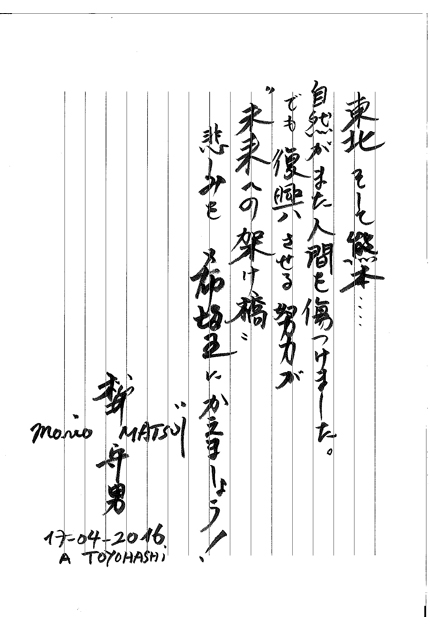 東北 そして熊本……
自然がまた人間を傷つけました。
でも 復興させる努力が
“未来への架け橋”
悲しみを 希望にかえましょう!
松井守男
Morio MATSUI
17-04-2016
A TOYOHASHI